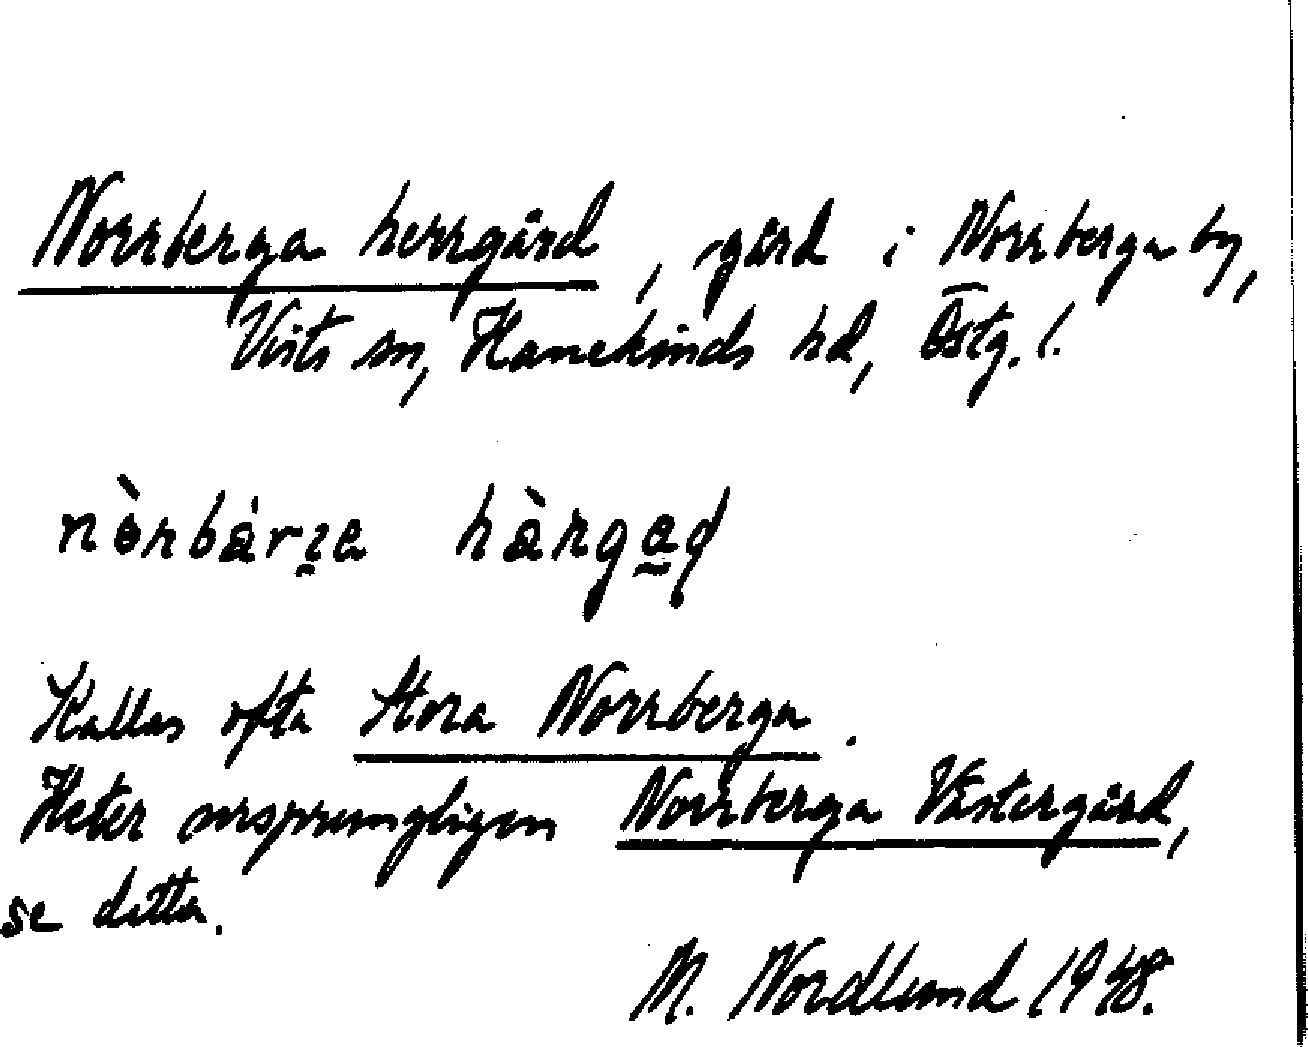 Norrberga herrgård, gård i Norrberga by,
Vists sn, Hanekinds hd, Östg. l.
nòrbárɪa hàrgaḍ
Kallas ofta Stora Norrberga.
Heter ursprungligen Norrberga Västergård,
se detta.
M. Nordlund 1948.